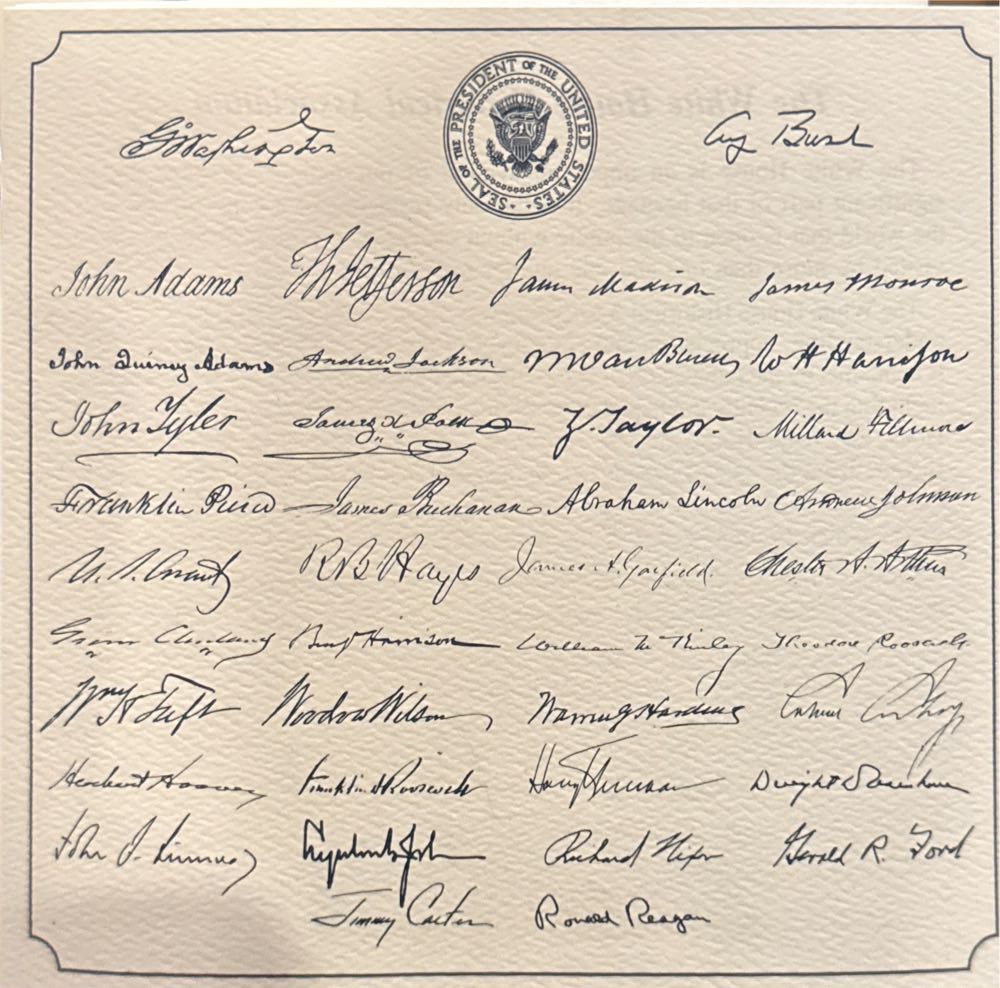 SEAL OF THE PRESIDENT OF THE UNITED STATES
G Washington Cag Bush
John Adams Th Jefferson James Madison James Monroe
John Quincy Adams Andrew Jackson M Van Buren W H Harrison
John Tyler James K Polk Z. Taylor. Millard Fillmore
Franklin Pierce James Buchanan Abraham Lincoln Andrew Johnson
U. S. Grant R B Hayes James A. Garfield. Chester A. Arthur
Grover Cleveland Benj Harrison William McKinley Theodore Roosevelt
Wm H Taft Woodrow Wilson Warren G Harding Calvin Coolidge
Herbert Hoover Franklin D Roosevelt Harry Truman Dwight D Eisenhower
John F. Kennedy Lyndon B Johnson Richard Nixon Gerald R. Ford
Jimmy Carter Ronald Reagan